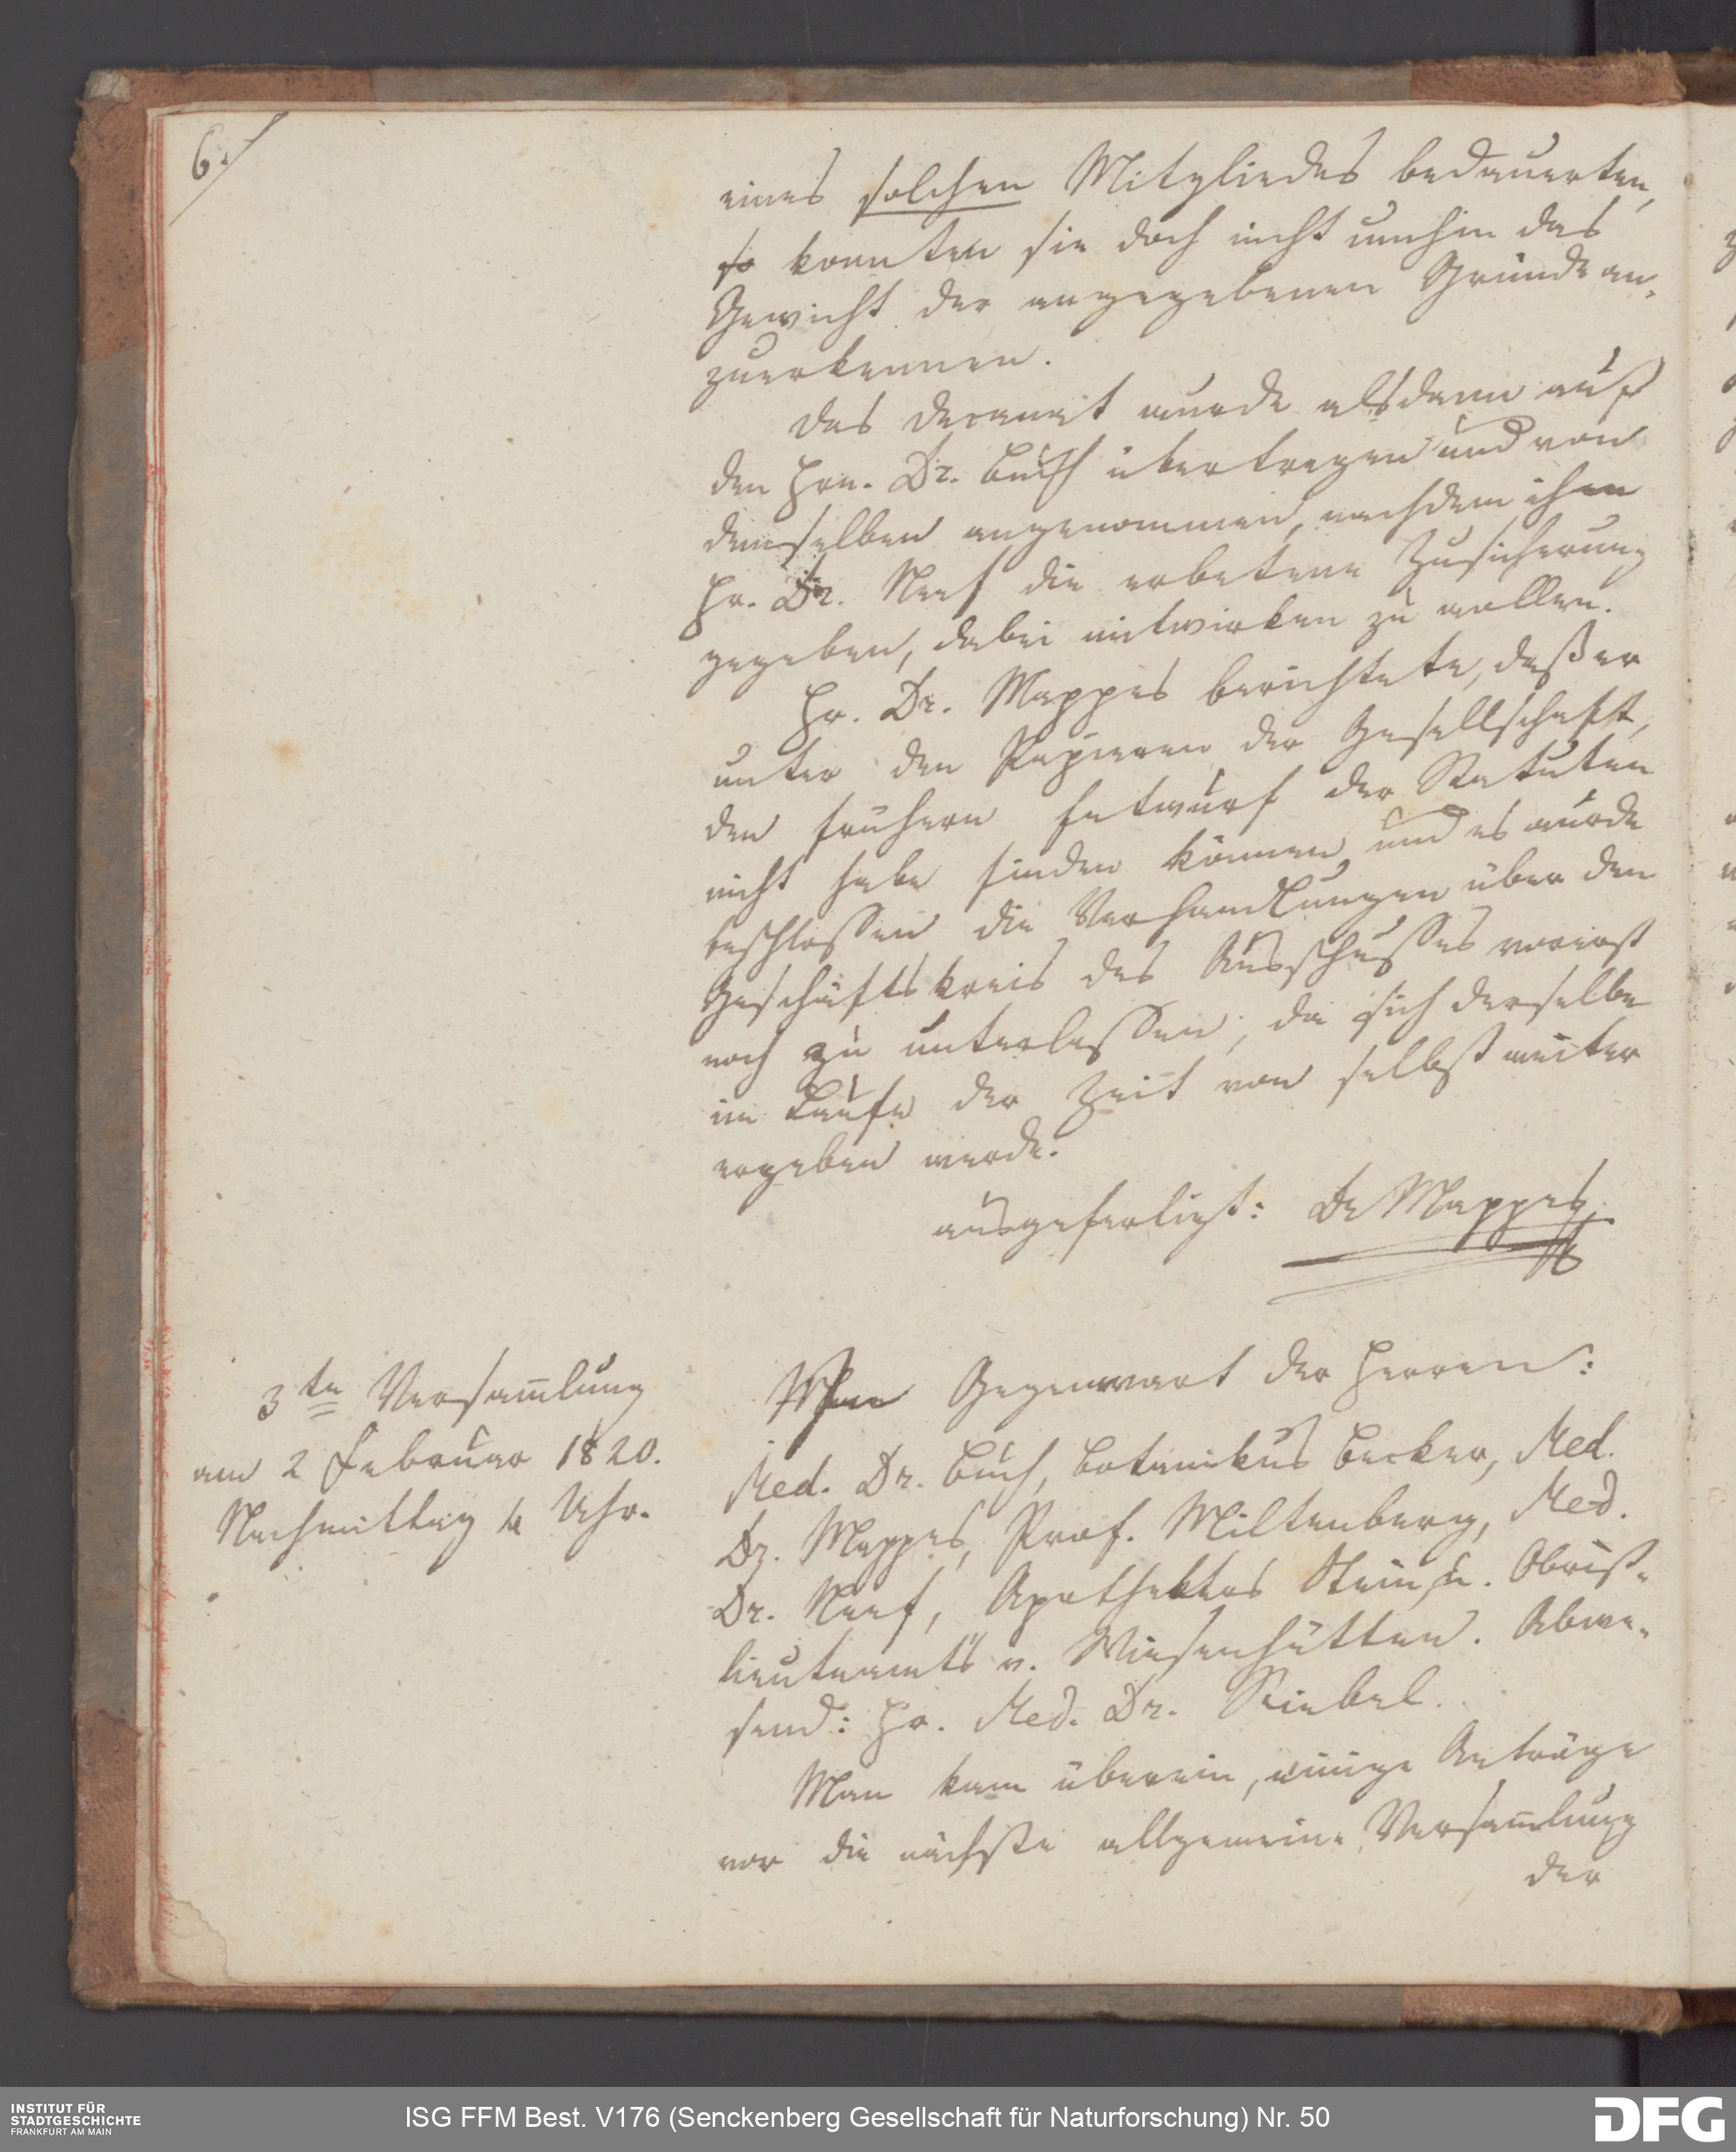 6.
eines solchen Mitgliedes bedauerten,
so konnten sie doch nicht umhin das
Gewicht der angegebenen Gründe an-
zuerkennen.
Das Decanat wurde alsdann auf
den Hrn. Dr. Buch übertragen und von
demselben angenommen, nachdem ihm
Hr. Dr. Neef die erbetene Zusicherung
gegeben, dabei mitwirken zu wollen.
Hr. Dr. Mappes berichtete, daß er
unter den Papieren der Gesellschaft,
den frühern Entwurf der Statuten
nicht habe finden können und es wurde
beschlossen die Verhandlungen über den
Geschäftskreis des Ausschusses vorerst
noch zu unterlassen, da sich derselbe
im Laufe der Zeit von selbst weiter
ergeben werde.
ausgefertigt: Dr Mappes
3te Versam̄lung
am 2 Februar 1820.
Nachmittag 4 Uhr.
Gegenwart der Herren:
Med. Dr. Buch, Botanikus Becker, Med.
Dr. Mappes, Prof. Miltenberg, Med.
Dr. Neef, Apotheker Stein, u. Obrist-
lieutenants v. Wiesenhütten. Abwe-
send: Hr. Med. Dr. Stiebel.
Man kam überein, einige Anträge
vor die nächste allgemeine Versam̄lung
der
INSTITUT FÜR
STADTGESCHICHTE
FRANKFURT AM MAIN
ISG FFM Best. V176 (Senckenberg Gesellschaft für Naturforschung) Nr. 50
DFG